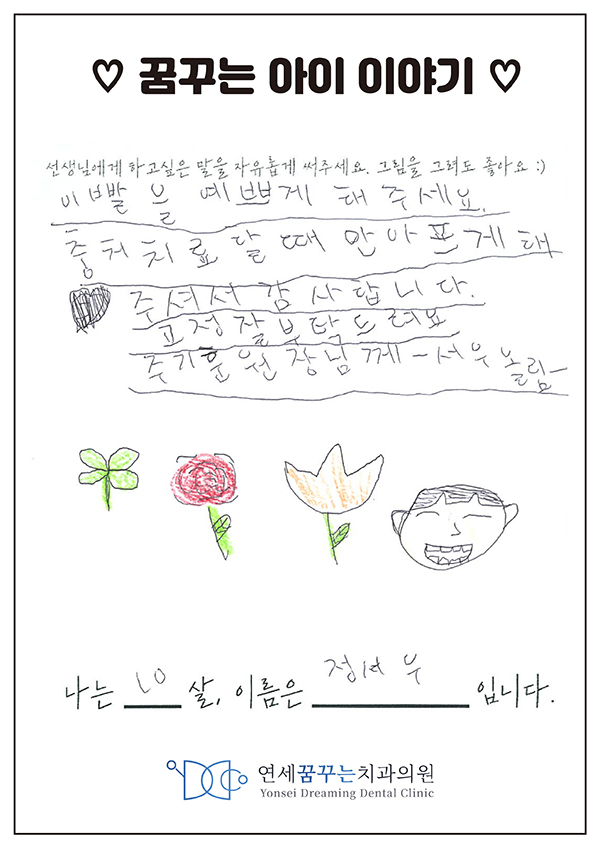 ♡ 꿈꾸는 아이 이야기 ♡
선생님에게 하고싶은 말을 자유롭게 써주세요. 그림을 그려도 좋아요 :)
이빨을 예쁘게 해주세요.
충치치료 할 때 안아프게 해
주셔서 감사합니다.
교정잘부탁드려요
주기훈원장님께 - 서우올림 -
나는 10 살, 이름은 정서우 입니다.
연세꿈꾸는치과의원
Yonsei Dreaming Dental Clinic